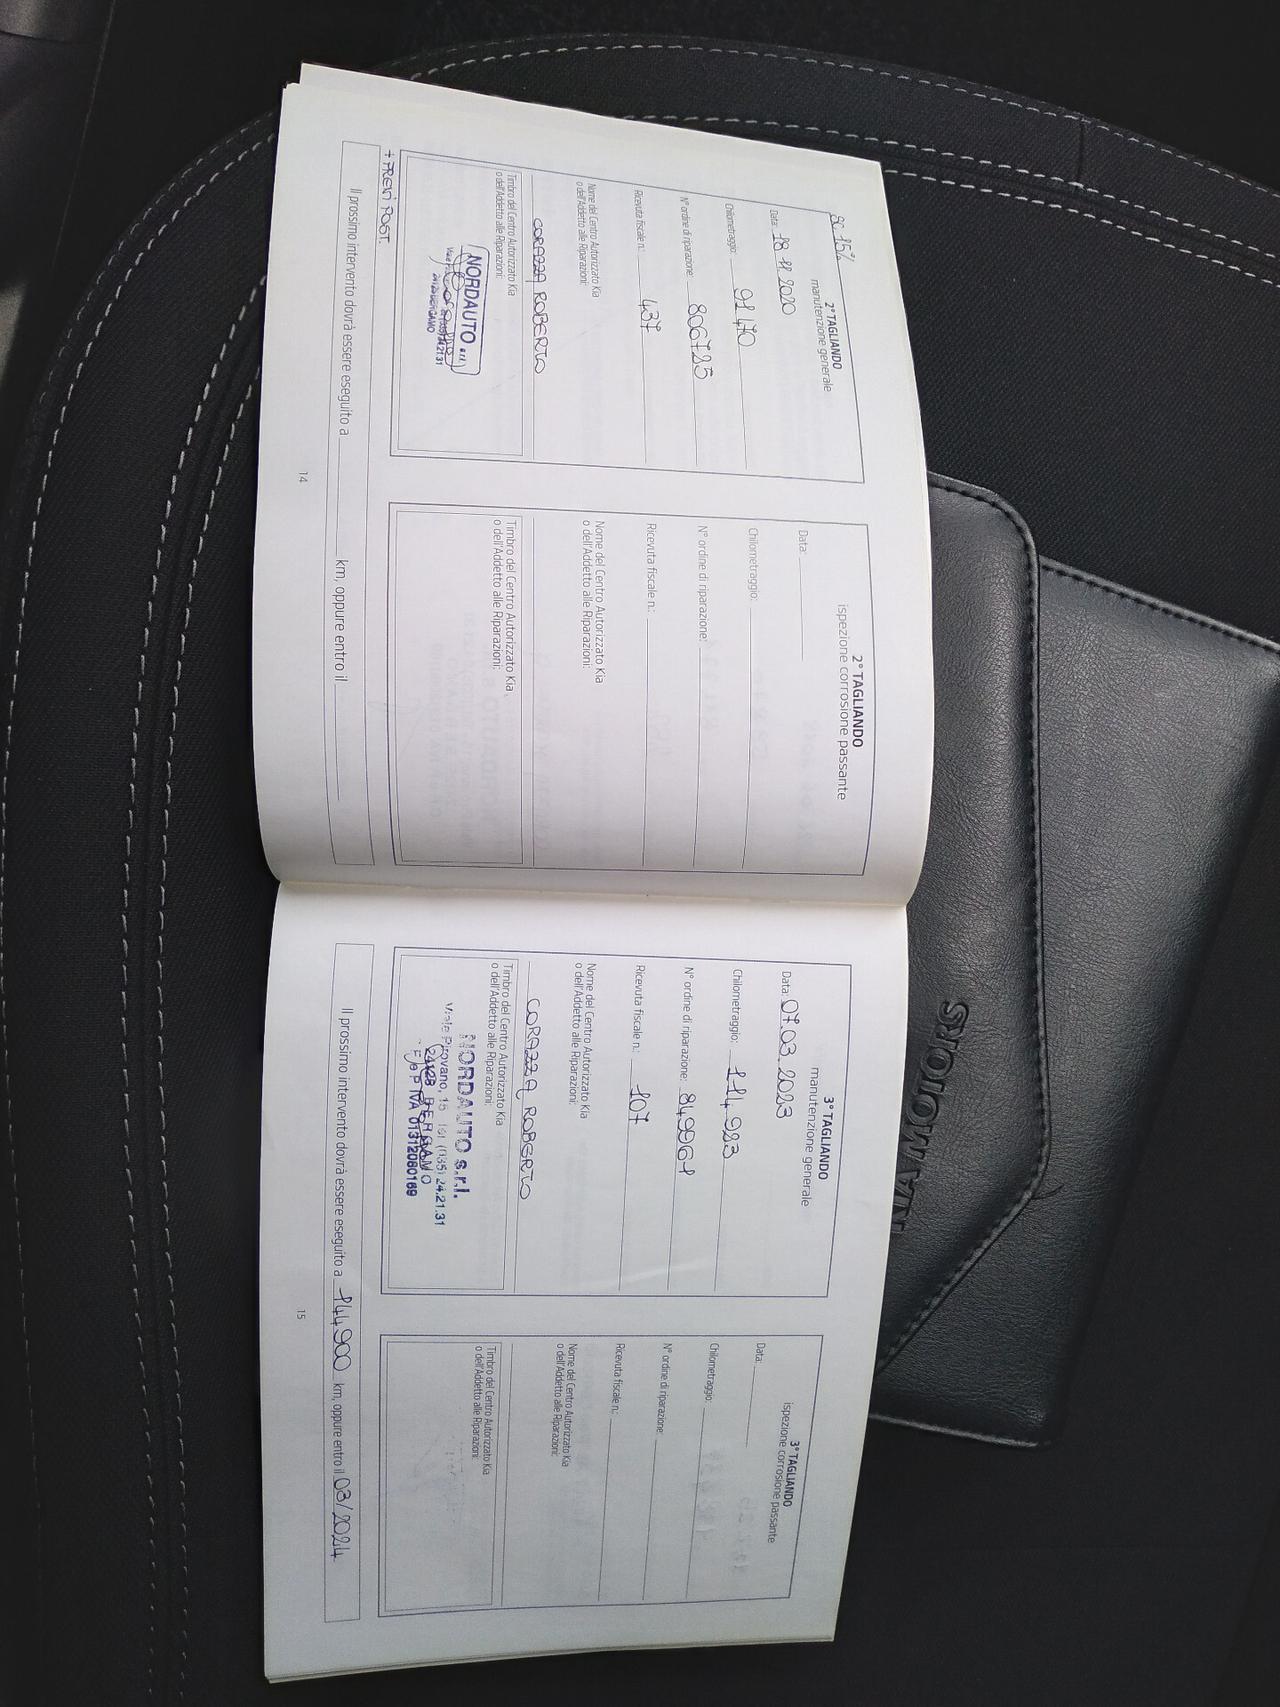 SC. 15%
2° TAGLIANDO
manutenzione generale
Data: 18.11.2020
Chilometraggio: 91470
N° ordine di riparazione: 806785
Ricevuta fiscale n.: 437
Nome del Centro Autorizzato Kia
o dell'Addetto alle Riparazioni:
CORAZZA ROBERTO
Timbro del Centro Autorizzato Kia
o dell'Addetto alle Riparazioni:
NORDAUTO s.r.l.
BERGAMO
+ FRENI POST.
2° TAGLIANDO
ispezione corrosione passante
Data:
Chilometraggio:
N° ordine di riparazione:
Ricevuta fiscale n.:
Nome del Centro Autorizzato Kia
o dell'Addetto alle Riparazioni:
Timbro del Centro Autorizzato Kia
o dell'Addetto alle Riparazioni:
Il prossimo intervento dovrà essere eseguito a km, oppure entro il
14
3° TAGLIANDO
manutenzione generale
Data: 07.03.2023
Chilometraggio: 114983
N° ordine di riparazione: 849961
Ricevuta fiscale n.: 107
Nome del Centro Autorizzato Kia
o dell'Addetto alle Riparazioni:
CORAZZA ROBERTO
Timbro del Centro Autorizzato Kia
o dell'Addetto alle Riparazioni:
NORDAUTO s.r.l.
Viale Pirovano, 15 Tel (035) 24.21.31
BERGAMO
P. IVA 01312080169
3° TAGLIANDO
ispezione corrosione passante
Data:
Chilometraggio:
N° ordine di riparazione:
Ricevuta fiscale n.:
Nome del Centro Autorizzato Kia
o dell'Addetto alle Riparazioni:
Timbro del Centro Autorizzato Kia
o dell'Addetto alle Riparazioni:
Il prossimo intervento dovrà essere eseguito a 144900 km, oppure entro il 03/2024
15
KIA MOTORS